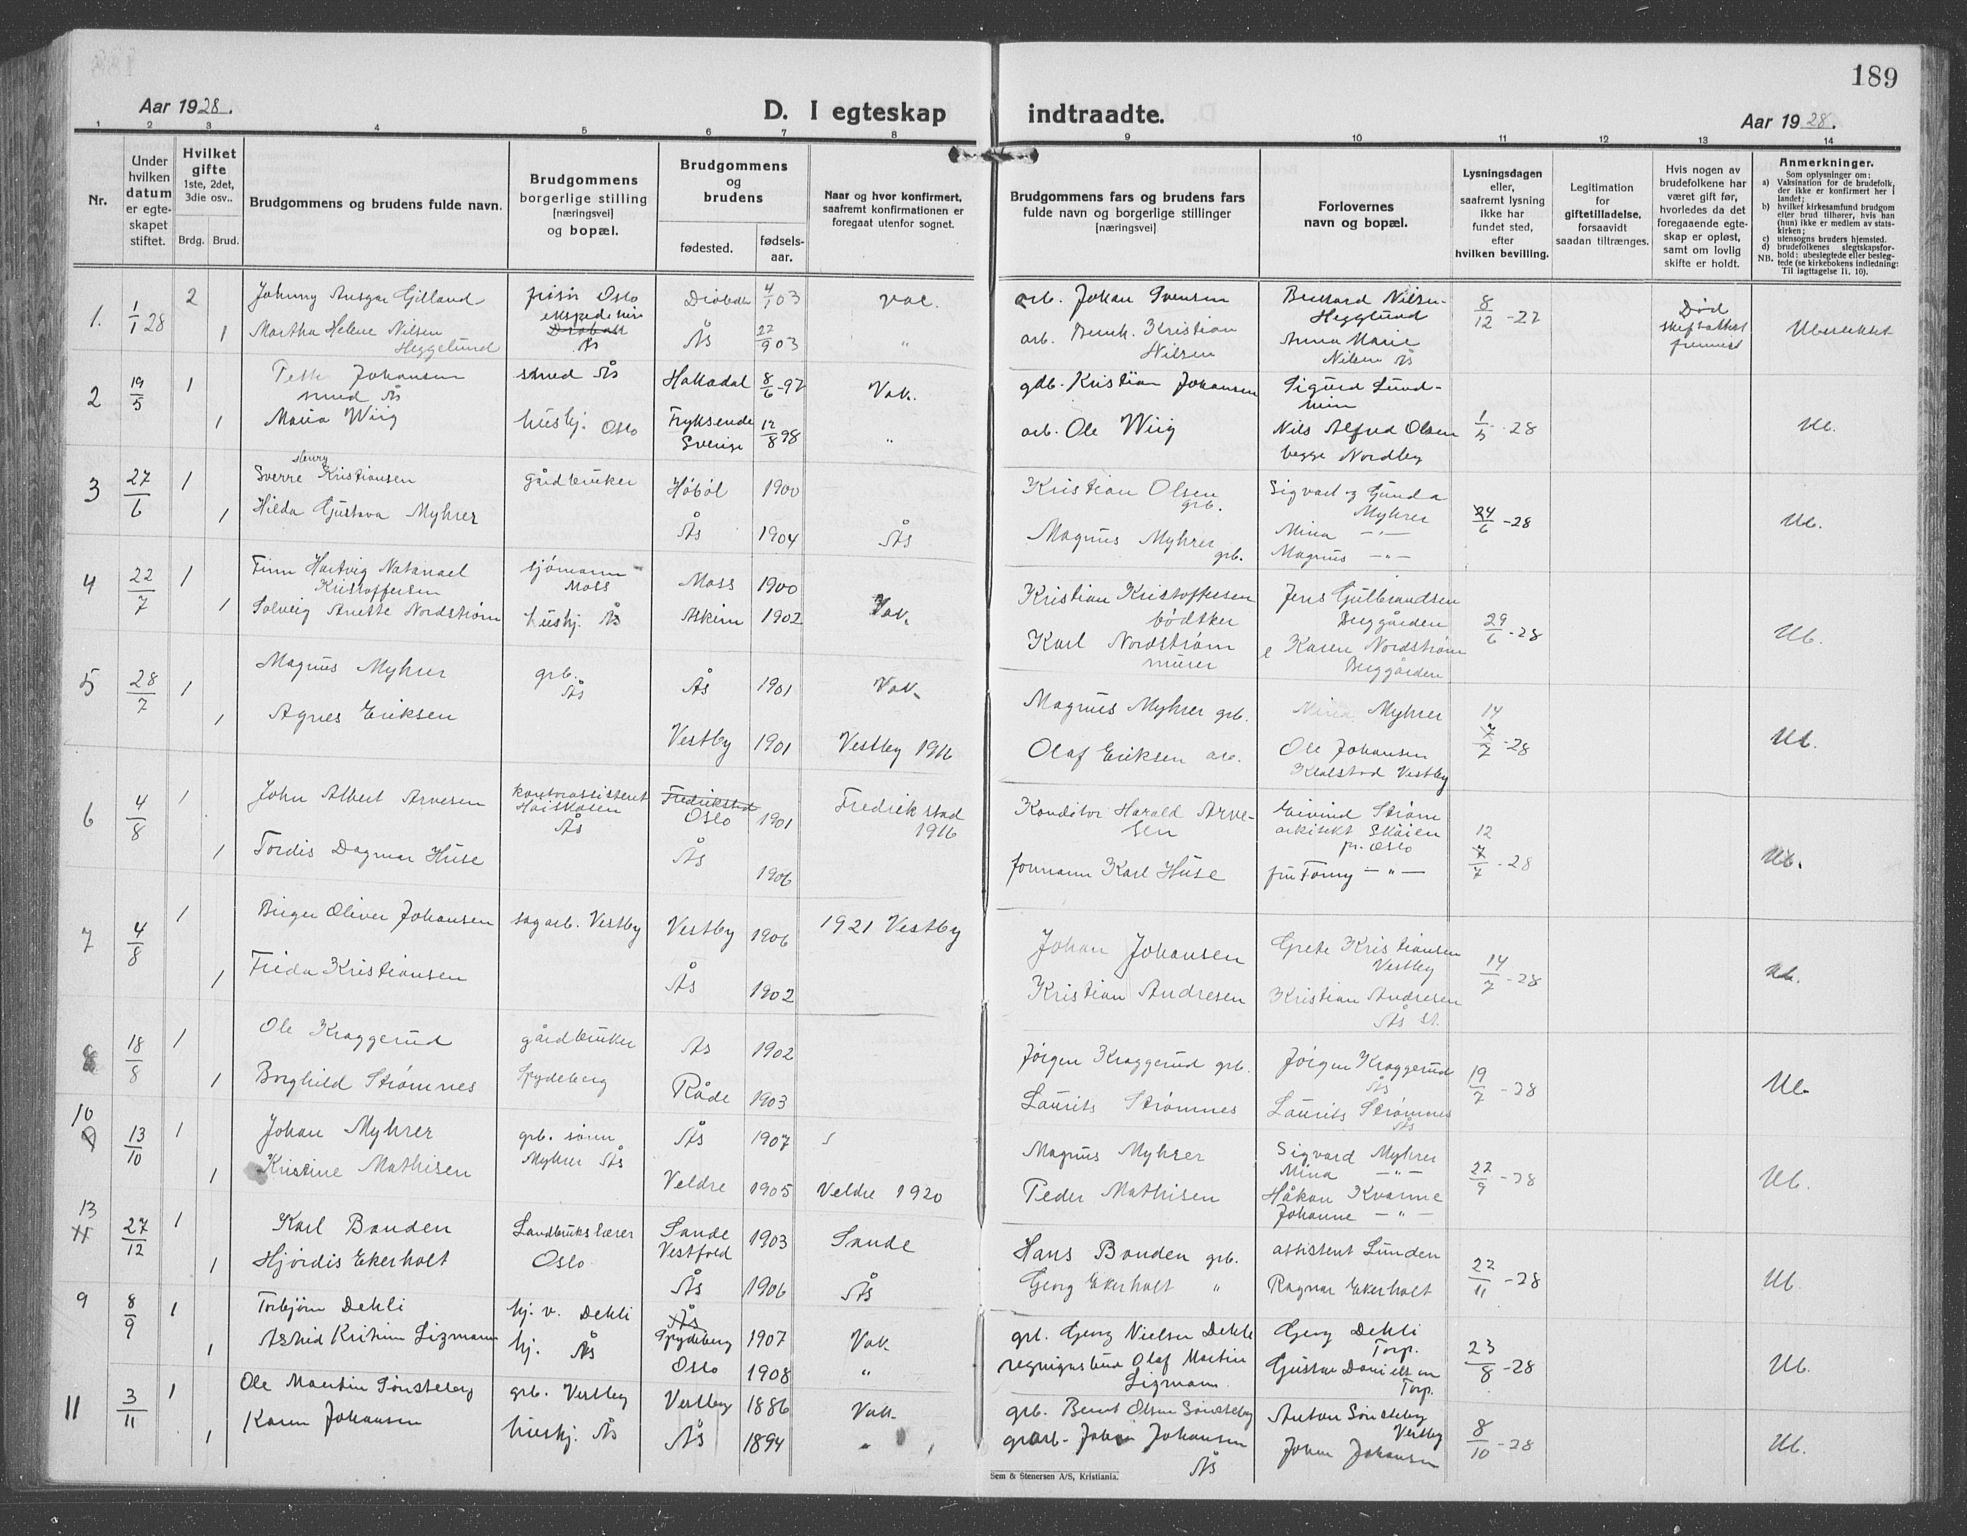 189
Aar 1928.
D. I egteskap indtraadte.
Aar 1928.
1 2 3 4 5 6 7 8 9 10 11 12 13 14
Nr.
Under hvilken datum er egteskapet stiftet.
Hvilket gifte 1ste, 2det, 3die osv..
Brdg. Brud.
Brudgommens og brudens fulde navn.
Brudgommens borgerlige stilling [næringsvei] og bopæl.
Brudgommens og brudens
fødested. fødsels-aar.
Naar og hvor konfirmert, saafremt konfirmationen er foregaat utenfor sognet.
Brudgommens fars og brudens fars fulde navn og borgerlige stillinger [næringsvei]
Forlovernes navn og bopæl.
Lysningsdagen eller, saafremt lysning ikke har fundet sted, efter hvilken bevilling.
Legitimation for giftetilladelse, forsaavidt saadan tiltrænges.
Hvis nogen av brudefolkene har været gift før, hvorledes da det foregaaende egteskap er opløst, samt om lovlig skifte er holdt.
Anmerkninger.
Som oplysninger om:
a) Vaksination for de brudefolk, der ikke er konfirmert her i landet;
b) hvilket kirkesamfund brudgom eller brud tilhører, hvis han (hun) ikke er medlem av statskirken;
c) utensogns bruders hjemsted.
d) brudefolkenes slegtskapsforhold: ubeslegtede eller beslegtede (se kirkebokens indledning: Til lagttagelse 11. 10).
NB.
1. 1/1 28 2 Johnny Ansgar Gilland frisør Oslo Drøbak 4/1 03 Vac. arb. Johan Svensen Bernard Nilsen Hegglund 8/12 -27 Død
1 Martha Helene Nilsen Heggelund Drøbak Ås Ås 22/9 03 " arb. Bernh. Kristian Nilsen Anna Marie Nilsen Ås
2 19/5 1 Johansen smed Ås smed Ås 8/6 -97 Vak. gdb. Kristian Johansen Sigurd Lund-
1 Maria Wiig huskj. Oslo Fryksende Sverige 12/8 98 " arb. Ole Wiig Nils Alfred Olsen begge Nordby 1/5 -28 Ub.
3 27/6 1 Sverre Henry Kristiansen gårdbruker Høbøl 1900 Kristian Olsen grb. Sigvart og Gunda Myhrer
1 Hilda Gustava Myhrer Ås 1904 Ås Magnus Myhrer grb. Mina — " — Magnus — " — 24/6 -28 Ub.
4 22/7 1 Finn Hartvig Natanael Kristoffersen sjømann Moss Moss 1900 Kristian Kristoffersen bødtker Jens Gulbrandsen Berggården
1 Solveig Anette Nordstrøm huskj. Ås Askim 1902 Vak. Karl Nordstrøm murer Karen Nordstrøm Berggården 29/6 -28 Ub.
5 28/7 1 Magnus Myhrer grb. Ås Ås 1901 Vak. Magnus Myhrer grb. Mina Myhrer
1 Agnes Eriksen Vestby 1901 Vestby 1916 Olaf Eriksen arb. Ole Johansen Kjølstad Vestby 14/7 -28 Ub.
6 4/8 1 John Albert Arvesen kontorassistent Ås Fredrikstad Oslo 1901 Fredrikstad 1916 Konditor Harald Arvesen Eivind Strøm arkitekt Skøien pr. Oslo
1 Tordis Dagmar Huse Ås 1906 formann Karl Huse fru Fanny — " — 12/7 -28 Ub.
7 4/8 1 Birger Oliver Johansen sagarb. Vestby Vestby 1906 1921 Vestby Johan Johansen Grete Kristiansen Vestby
1 Frida Kristiansen Ås 1902 Kristian Andresen Kristian Andresen Ås st. 14/7 -28 Ub.
8 18/8 1 Ole Kraggerud gårdbruker Ås 1902 Jørgen Kraggerud grb. Jørgen Kraggerud Ås
1 Borghild Strømnes Spydeberg Råde 1903 Laurits Strømnes Laurits Strømnes Ås 19/7 -28 Ub
10 9 13/10 1 Johan Myhrer grb. sønn Myhrer Ås Ås 1907 Magnus Myhrer Sigvard Myhrer Mina — " —
1 Kristine Mathisen Veldre 1905 Veldre 1920 Peder Mathisen Håkon Kvarme Johanne — " — 22/9 -28 Ub.
13 11 27/12 1 Karl Bonden Landbrukslærer Oslo Sande Vestfold 1903 Sande Hans Bonden grb. assistent Lunden
1 Hjørdis Ekerholt Ås 1906 Ås Georg Ekerholt " Ragnar Ekerholt 22/11 -28 Ub.
9 8/9 1 Torbjørn Dehli hj. v. Dehli Ås Spydeberg 1907 Vak. grb. Georg Nielsen Dehli Georg Dehli Torp.
1 Astrid Kristine Sizmann hj. Ås Oslo 1908 " Olaf Martin Sizmann Gustav Danielsen Torp. 23/8 -28 Ub.
11 3/11 1 Ole Martin Sønsteby grb. Vestby Vestby 1886 Vak. grb. Bernt Olsen Sønsteby Anton Sønsteby Vestby
1 Karen Johansen huskj. Ås Ås 1894 " Johan Johansen Ås Johan Johansen 8/10 -28 Ub.
Sem & Stenersen A/S, Kristiania.